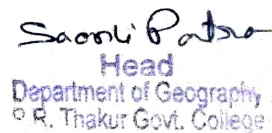 Head
Department of Geography
P. R. Thakur Govt. College